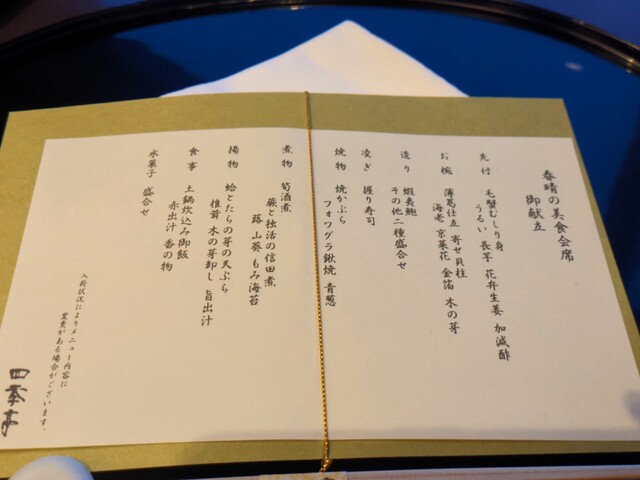 春晴の美食会席
御献立
先付 毛蟹むしり身
うるい 長芋 花弁生姜 加減酢
お椀 薄葛仕立 寄せ貝柱
海老 京菜花 金箔 木の芽
造り 蝦夷鮑
その他二種盛合せ
凌ぎ 握り寿司
焼物 焼かぶら
フォワグラ鍬焼 青葱
煮物 筍酒煮
蕨と独活の信田煮
蕗 山葵 もみ海苔
揚物 蛤とたらの芽の天ぷら
椎茸 木の芽卸し 旨出汁
食事 土鍋炊込み御飯
赤出汁 香の物
水菓子 盛合せ
入荷状況によりメニュー内容に
変更がある場合がございます。
四季亭